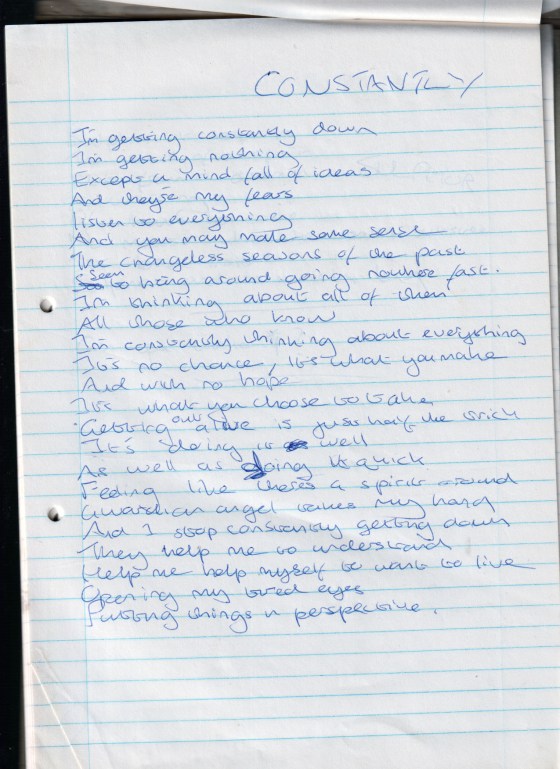 CONSTANTLY
I'm getting constantly down
I'm getting nothing
Except a mind full of ideas
And they're my fears
listen to everything
And you may make some sense
The changeless seasons of the past
Seem to bring around going nowhere fast.
I'm thinking about all of them
All those who know
I'm constantly thinking about everything
It's no chance, it's what you make
And with no hope
It's what you choose to take
Getting out alive is just half the trick
It's doing it well
As well as doing it quick
Feeling like there's a spirit around
Guardian angel takes my hand
And I stop constantly getting down
They help me to understand
Help me help myself to want to live
Opening my tired eyes
Putting things in perspective.